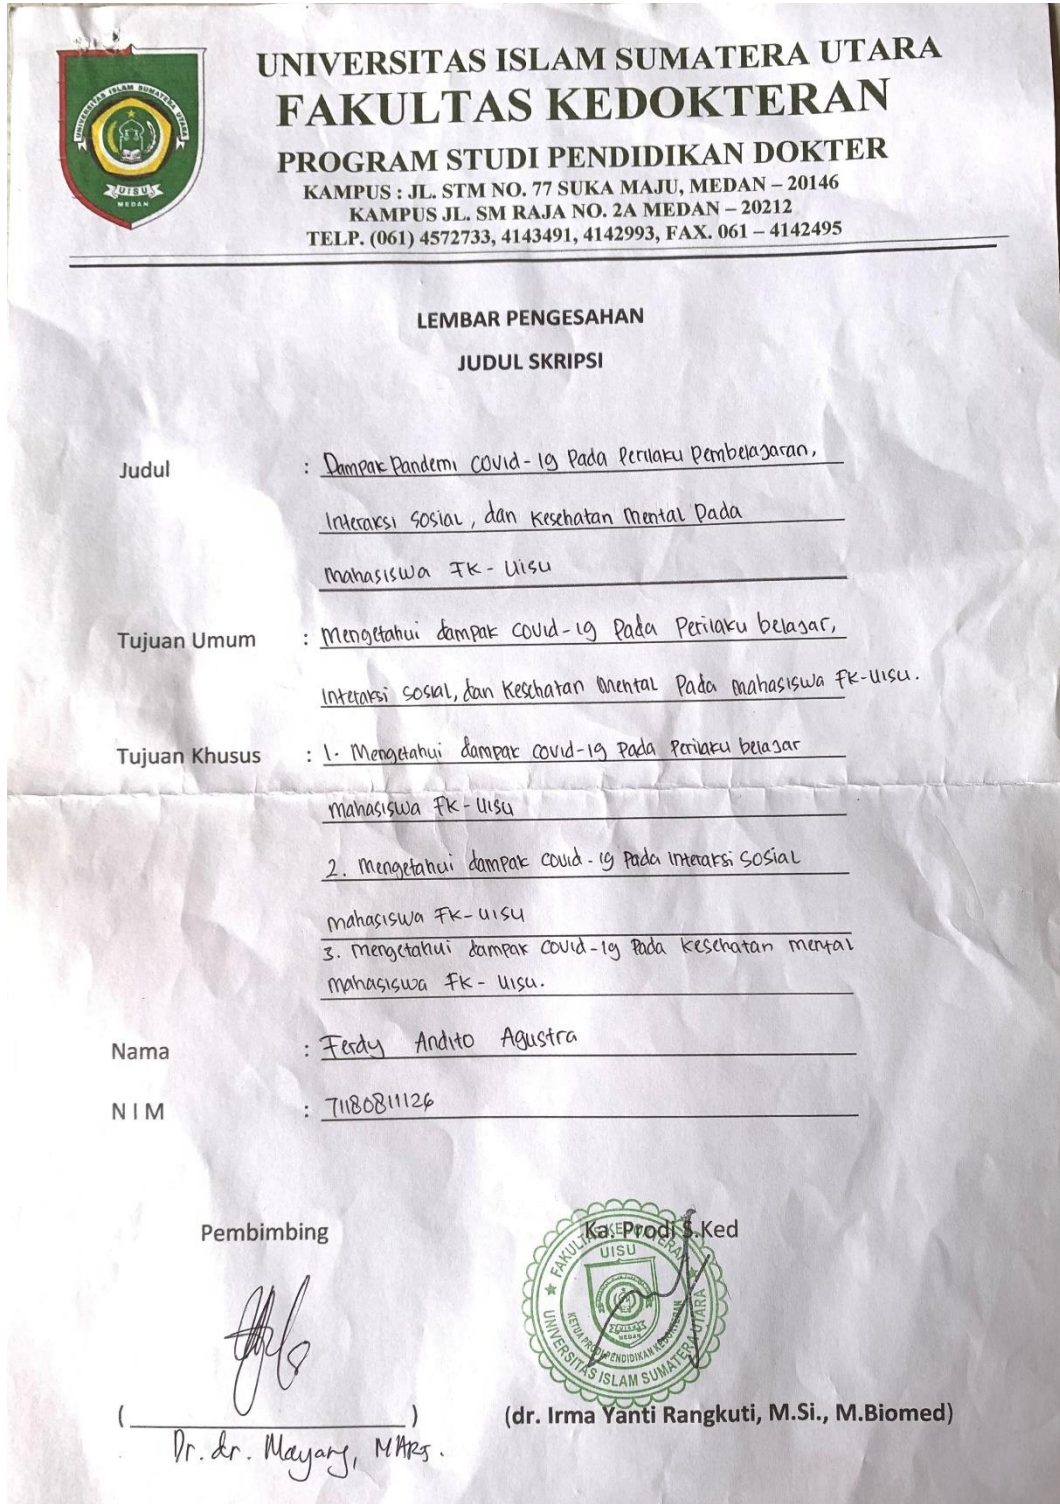 UNIVERSITAS ISLAM SUMATERA UTARA
FAKULTAS KEDOKTERAN
PROGRAM STUDI PENDIDIKAN DOKTER
KAMPUS : JL. STM NO. 77 SUKA MAJU, MEDAN – 20146
KAMPUS JL. SM RAJA NO. 2A MEDAN – 20212
TELP. (061) 4572733, 4143491, 4142993, FAX. 061 – 4142495
UNIVERSITAS ISLAM SUMATERA UTARA
UISU
MEDAN
LEMBAR PENGESAHAN
JUDUL SKRIPSI
Judul : Dampak Pandemi COVID-19 Pada Perilaku Pembelajaran,
Interaksi Sosial, dan Kesehatan Mental Pada
Mahasiswa FK-UISU
Tujuan Umum : Mengetahui dampak COVID-19 Pada Perilaku belajar,
Interaksi Sosial, dan Kesehatan Mental Pada Mahasiswa FK-UISU.
Tujuan Khusus : 1. Mengetahui dampak covid-19 Pada Perilaku belajar
Mahasiswa FK-UISU
2. Mengetahui dampak covid-19 Pada Interaksi Sosial
Mahasiswa FK-UISU
3. Mengetahui dampak covid-19 Pada kesehatan mental
Mahasiswa FK-UISU.
Nama : Ferdy Andito Agustra
N I M : 71180811126
Pembimbing Ka. Prodi S.Ked
FAKULTAS KEDOKTERAN
UISU
MEDAN
KETUA PRODI PENDIDIKAN KEDOKTERAN
UNIVERSITAS ISLAM SUMATERA UTARA
(                    ) (dr. Irma Yanti Rangkuti, M.Si., M.Biomed)
Dr. dr. Mayang, MARS.